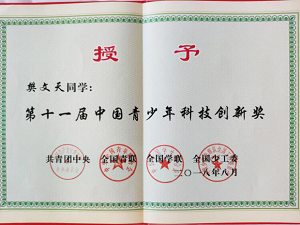 授予
樊文天同学：
第十一届中国青少年科技创新奖
共青团中央 全国青联 全国学联 全国少工委
二〇一八年八月